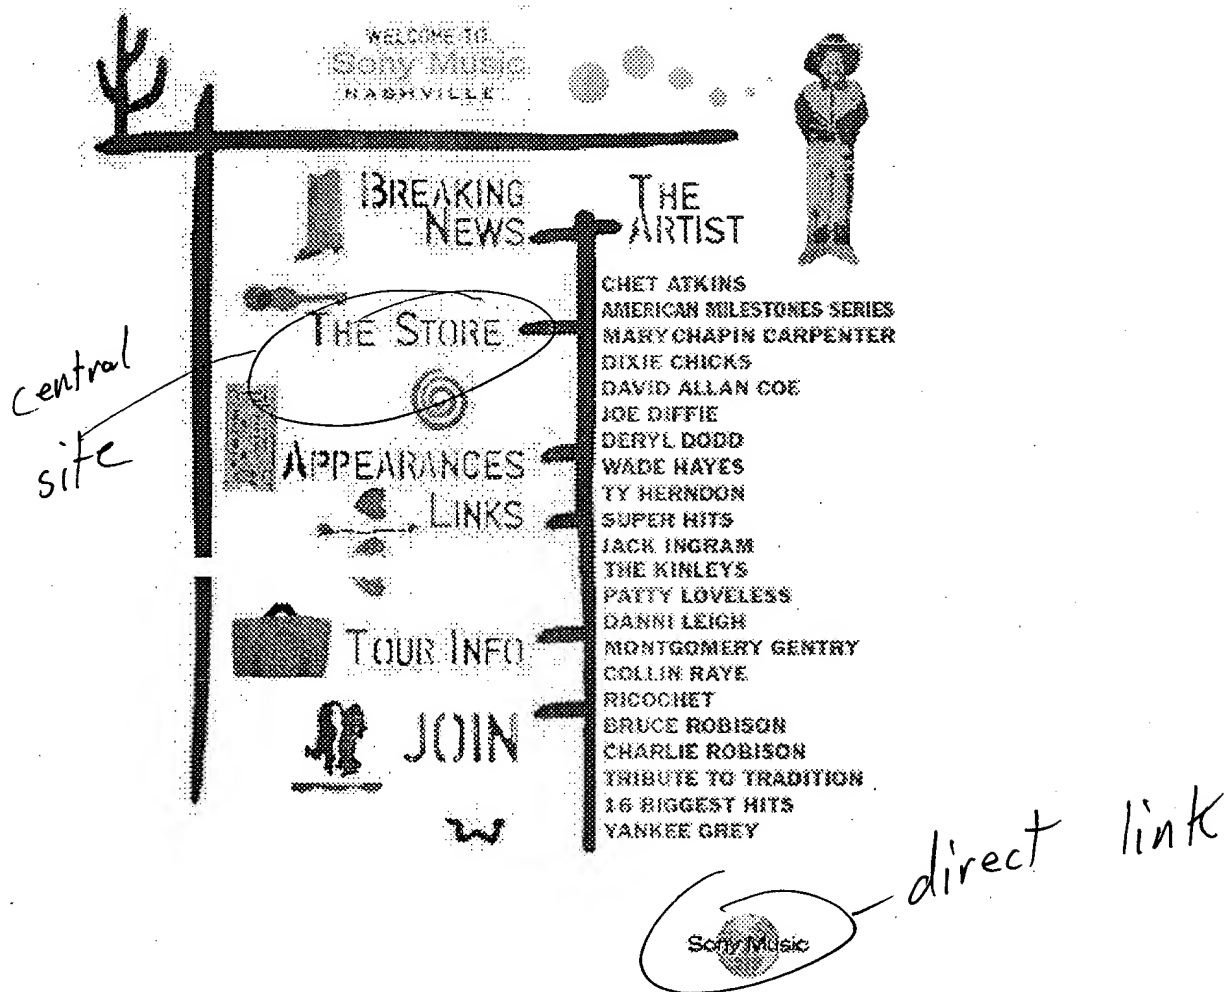 WELCOME TO
Sony Music
NASHVILLE
BREAKING
NEWS
THE
ARTIST
THE STORE
APPEARANCES
LINKS
TOUR INFO
JOIN
CHET ATKINS
AMERICAN MILESTONES SERIES
MARY CHAPIN CARPENTER
DIXIE CHICKS
DAVID ALLAN COE
JOE DIFFIE
DERYL DODD
WADE HAYES
TY HERNDON
SUPER HITS
JACK INGRAM
THE KINLEYS
PATTY LOVELESS
DANNI LEIGH
MONTGOMERY GENTRY
COLLIN RAYE
RICOCHET
BRUCE ROBISON
CHARLIE ROBISON
TRIBUTE TO TRADITION
16 BIGGEST HITS
YANKEE GREY
central
site
direct link
Sony Music